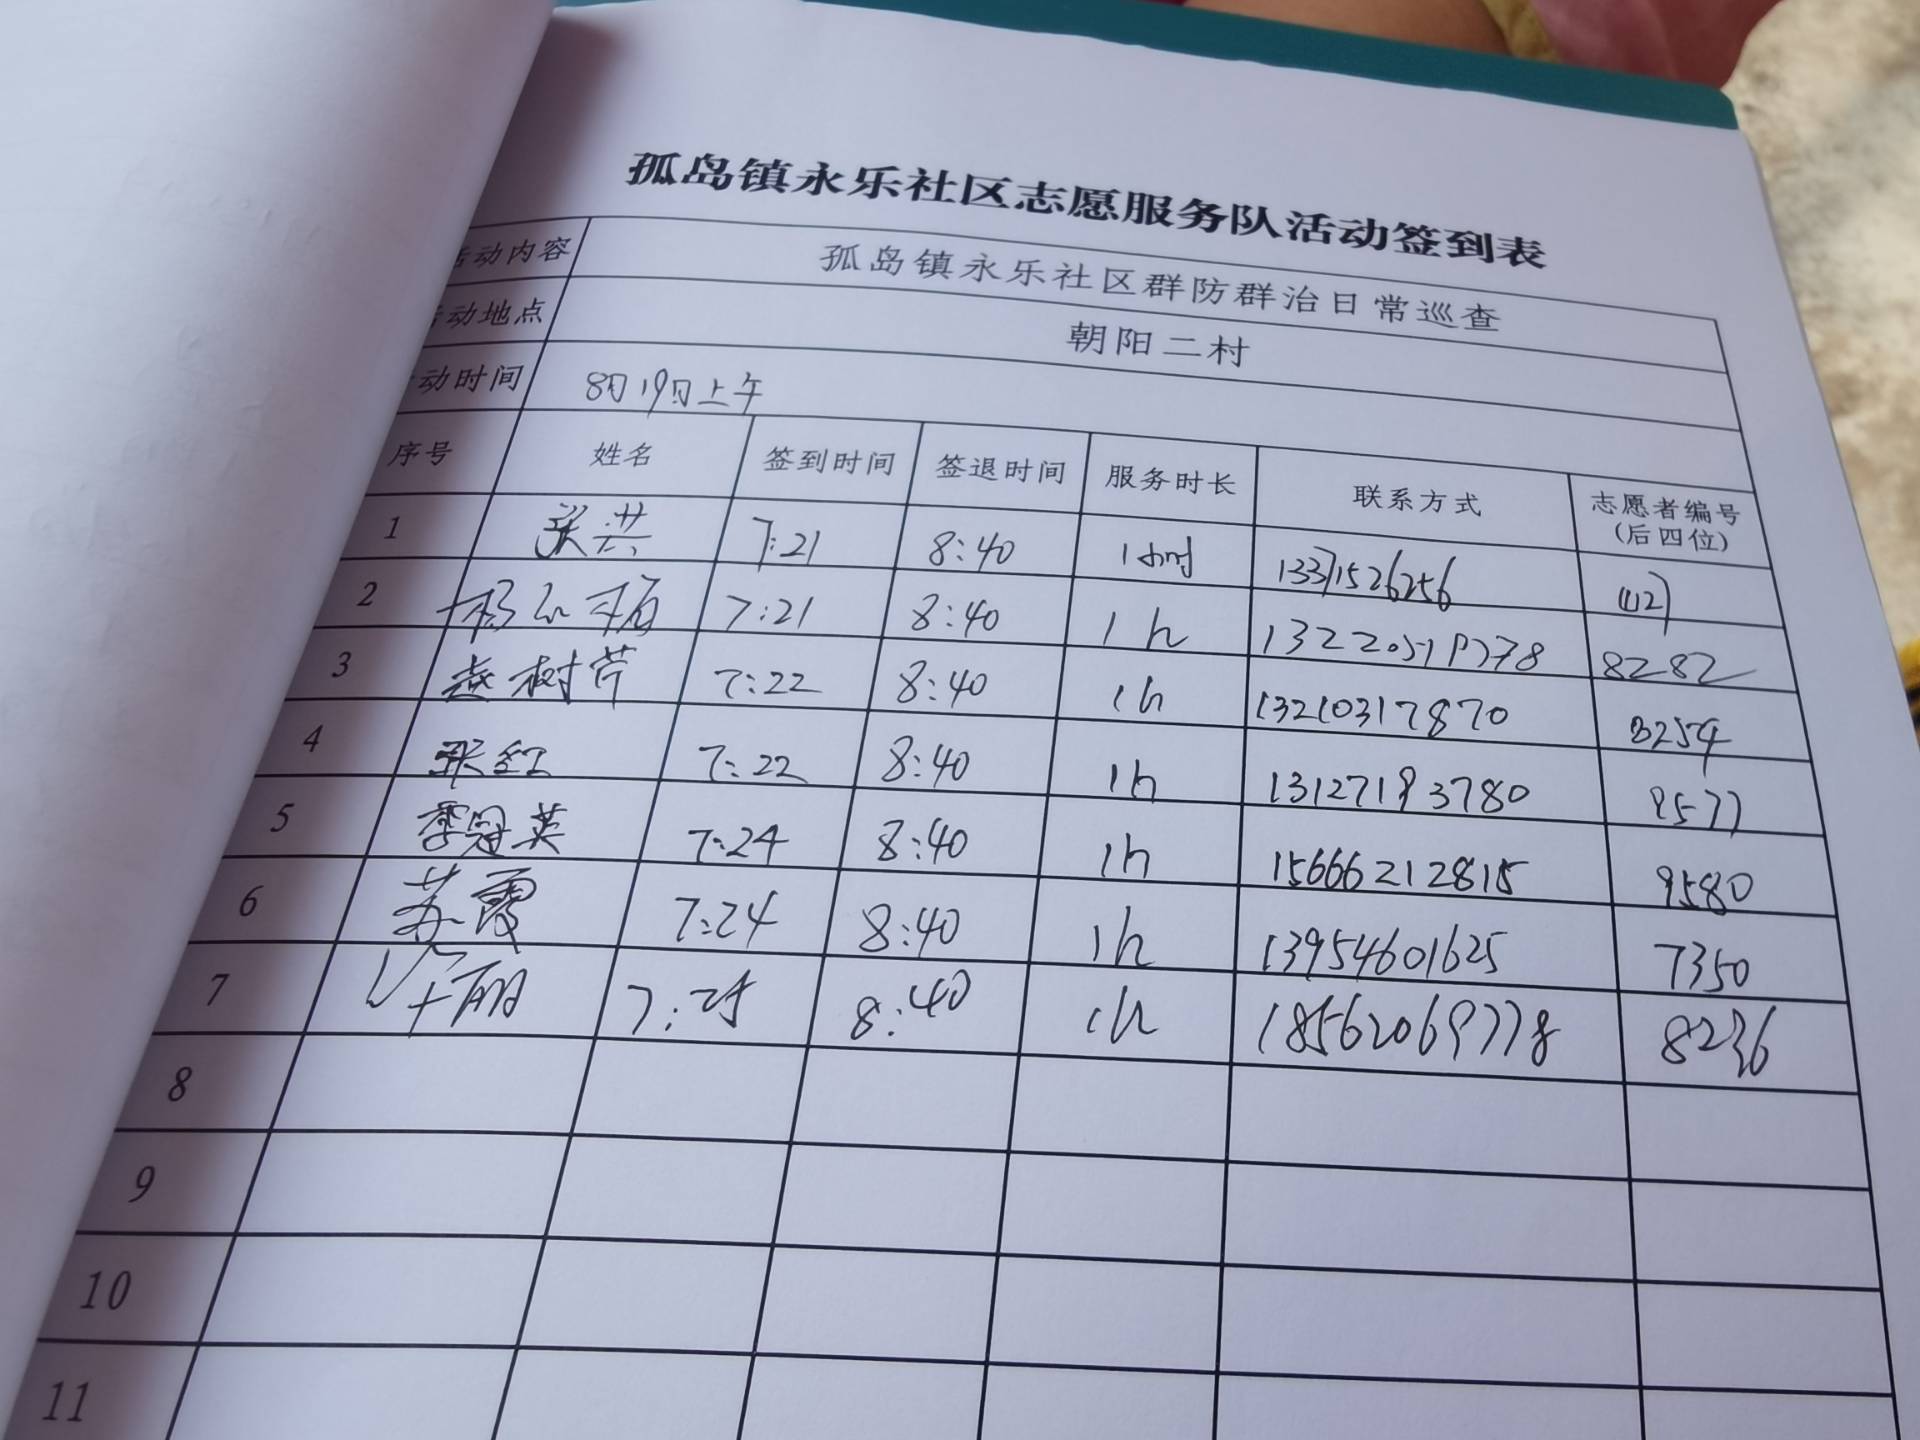 孤岛镇永乐社区志愿服务队活动签到表
活动内容 孤岛镇永乐社区群防群治日常巡查
活动地点 朝阳二村
活动时间 8月19日上午
序号 姓名 签到时间 签退时间 服务时长 联系方式 志愿者编号
(后四位)
1 7:21 8:40 1小时 13371526256
2 7:21 8:40 1h 8282
3 赵树芹 7:22 8:40 1h 13210317870 3254
4 张红 7:22 8:40 1h 13127193780
5 李冠英 7:24 8:40 1h 15666212815 9580
6 苏霞 7:24 8:40 1h 13954601625 7350
7 8:40 1h 18562069778 8236
8
9
10
11